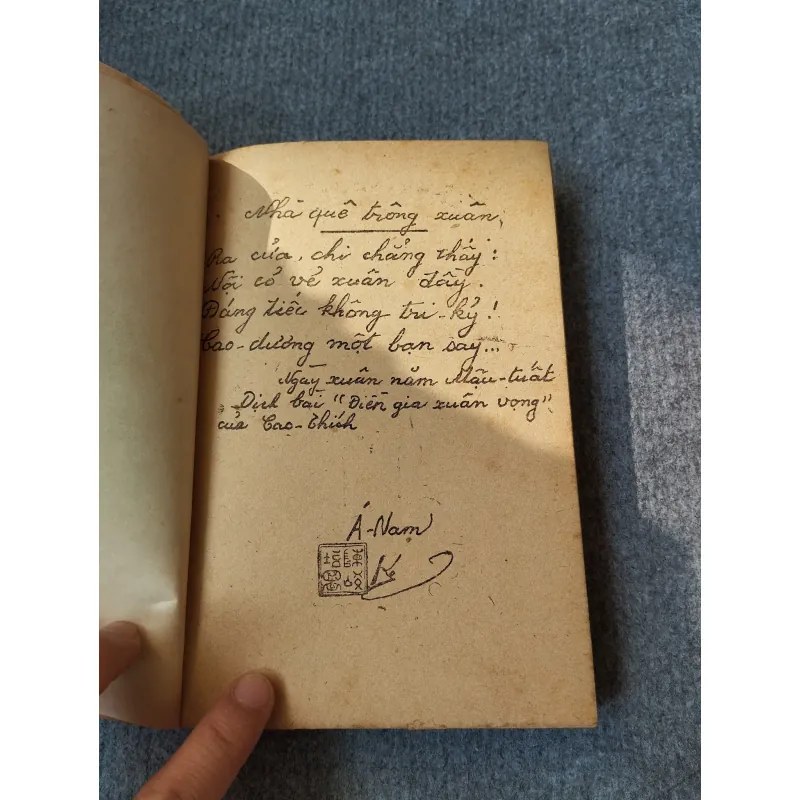 Nhà quê trông xuân,
Ra cửa, chi chẳng thấy:
Nội cỏ vẻ xuân đầy.
Đáng tiếc không tri-kỷ!
Cao-dương một bạn say...
Ngày xuân năm Mậu-tuất
Dịch bài "Điền gia xuân vọng"
của Cao-Thích
Á-Nam